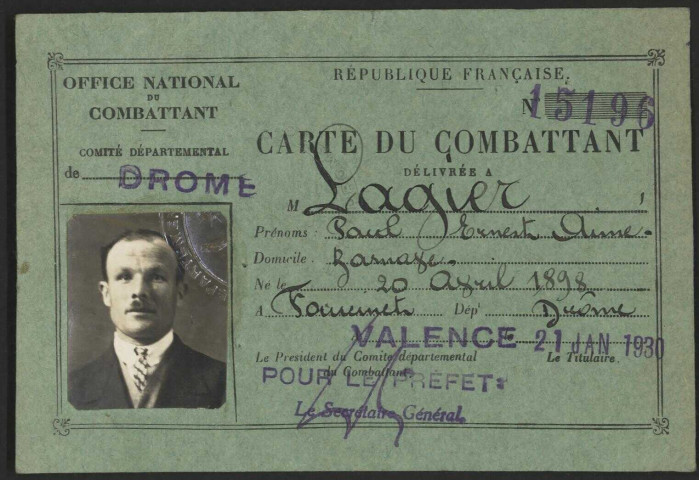 OFFICE NATIONAL
DU
COMBATTANT
COMITÉ DÉPARTEMENTAL
de DROME
RÉPUBLIQUE FRANÇAISE.
N 15196
CARTE DU COMBATTANT
DÉLIVRÉE A
M Lagier
Prénoms : Paul Ernest Aime
Domicile :
Né le 20 Avril 1898
A Dép' Drôme
VALENCE le 21 JAN 1930
Le Président du Comité départemental
du Combattant
Le Titulaire.
POUR LE PRÉFET:
Le Secrétaire Général.